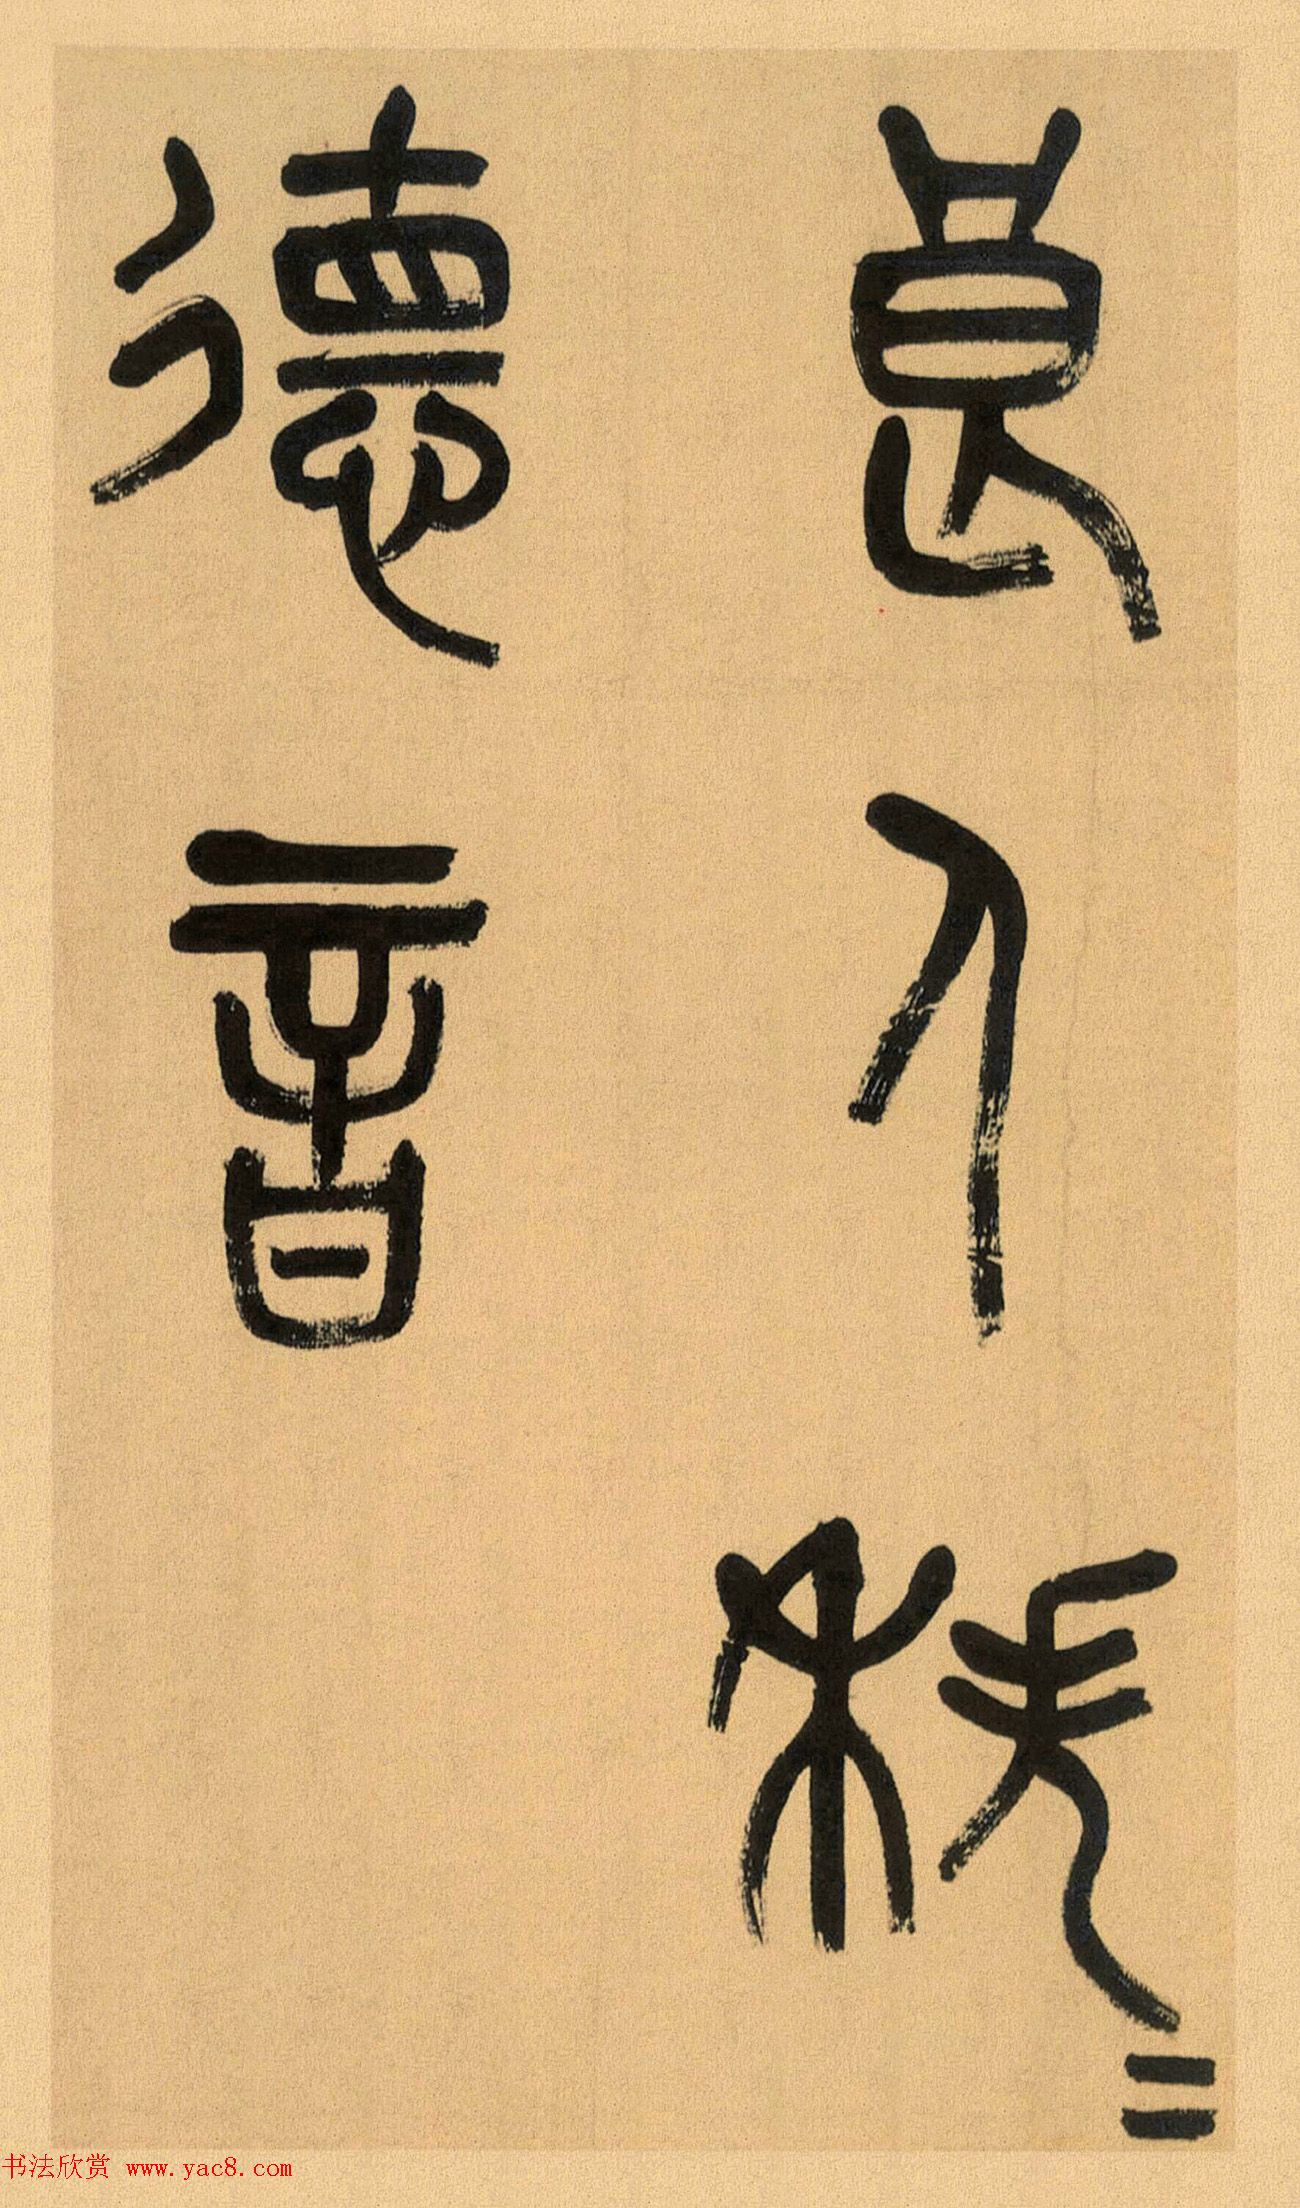 良人秩〻
德音
书法欣赏 www.yac8.com